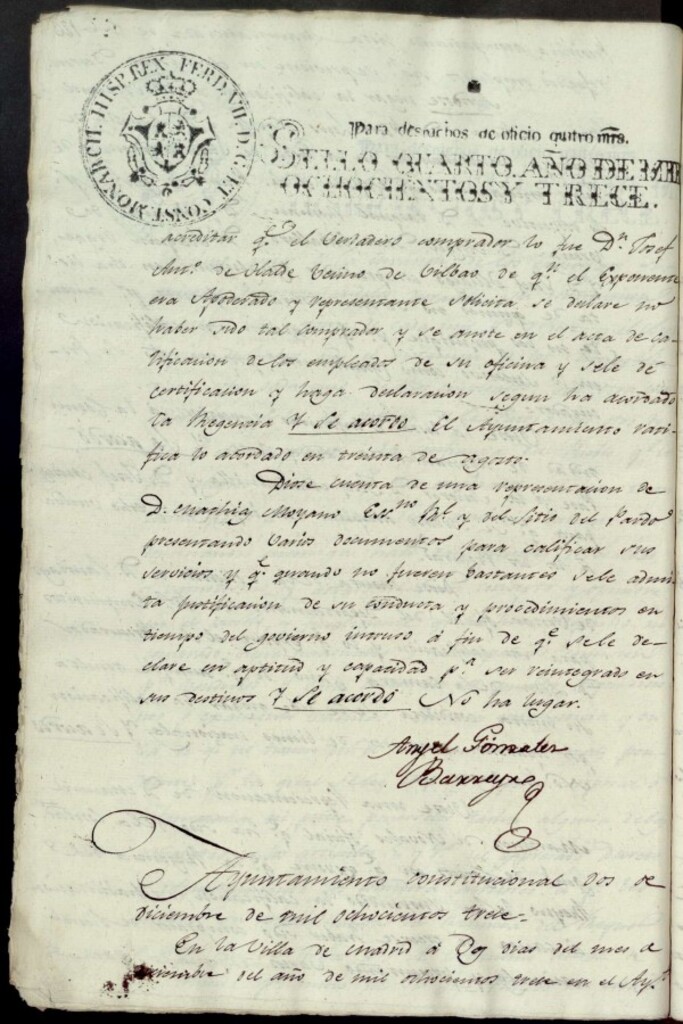 HISP. REX. FERD. VII. D. G. ET CONST. MONARCH.
Para despachos de oficio quatro mrs.
SELLO QUARTO. AÑO DE MIL
OCHOCIENTOS Y TRECE.
acreditar q.e el verdadero comprador lo fue D.n Josef
Ant.o de Olalde Vecino de Bilbao de q.n el Exponente
era Apoderado y representante solicita se declare no
haber sido tal comprador y se anote en el acta de ca-
lificacion de los empleados de su oficina y se le dé
certificacion y haga declaracion segun ha acordado
la Regencia Y Se acordo El Ayuntamiento rati-
fica lo acordado en treinta de Agosto.
Diose cuenta de una representacion de
D. Mathias Moyano Ess.no R.l y del Sitio del Pardo
presentando varios documentos para calificar sus
servicios y q.e quando no fueren bastantes se le admi-
ta justificacion de su conducta y procedimientos en
tiempo del govierno intruso á fin de q.e se le de-
clare en aptitud y capacidad p.a ser reintegrado en
sus destinos Y Se acordo No ha lugar.
Angel Gonzalez
Barreyro
Ayuntamiento constitucional dos de
diciembre de mil ochocientos trece-
En la Villa de Madrid á Dos dias del mes de
Diciembre del año de mil ochocientos trece en el Ay.to